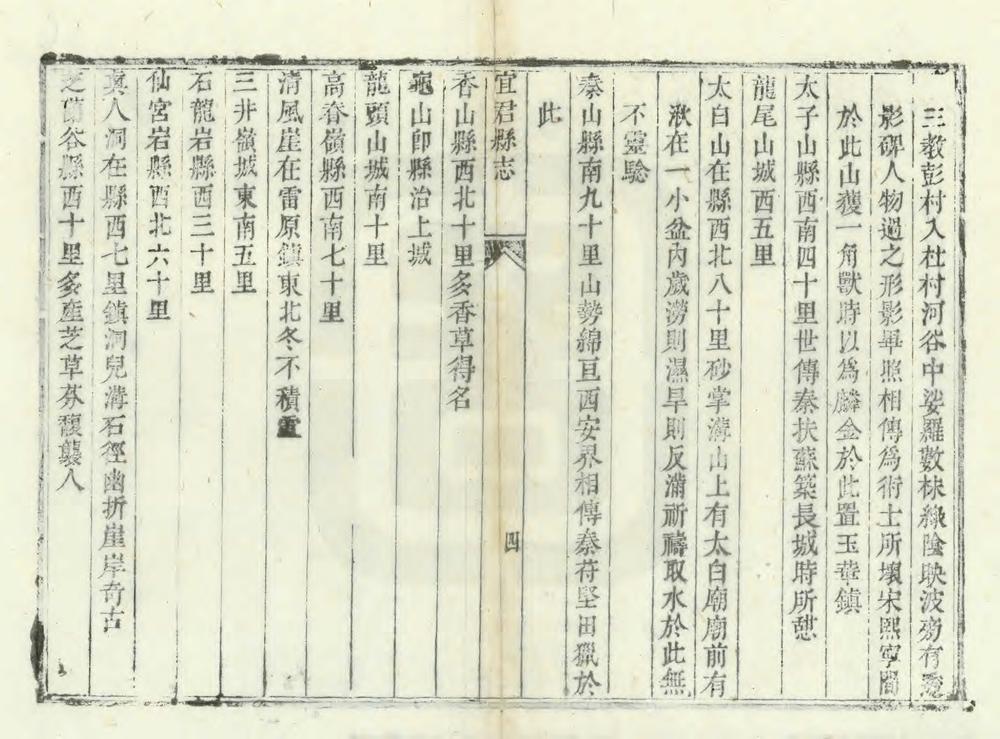 三教彭村入杜村河谷中娑羅數株綠陰映波旁有
影碑人物過之形影畢照相傳爲術士所壞宋熙寧間
於此山獲一角獸時以爲麟金於此置玉華鎮
太子山縣西南四十里世傳秦扶蘇築長城時所憩
龍尾山城西五里
太白山在縣西北八十里砂掌溝山上有太白廟廟前有
湫在一小盆內歲澇則濕旱則反滿祈禱取水於此無
不靈驗
秦山縣南九十里山勢綿亘西安界相傳秦苻堅田獵於
此
宜君縣志
四
香山縣西北十里多香草得名
龜山卽縣治上城
龍頭山城南十里
高脊嶺縣西南七十里
清風崖在雷原鎮東北冬不積雪
三井嶺城東南五里
石龍岩縣西三十里
仙宮岩縣西北六十里
真人洞在縣西七里鎮洞兒溝石徑幽折崖岸奇古
芝蘭谷縣西十里多產芝草芬馥襲人